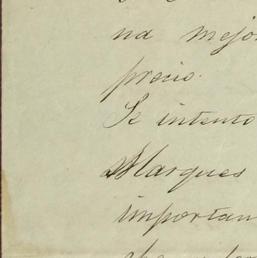 na mejo
precio.
Se intento
Marques
importan